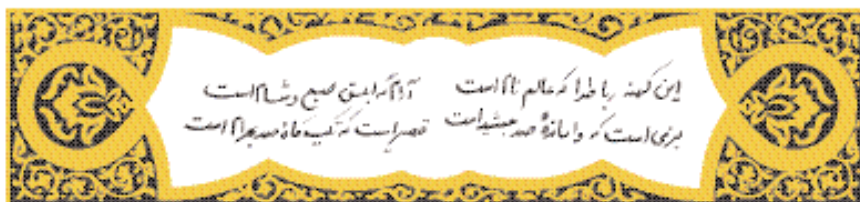 این کهنه رباط را که عالم نام است آرامگه ابلق صبح و شام است
بزمی است که واماندهٔ صد جمشید است قصریست که تکیه گاه صد بهرام است